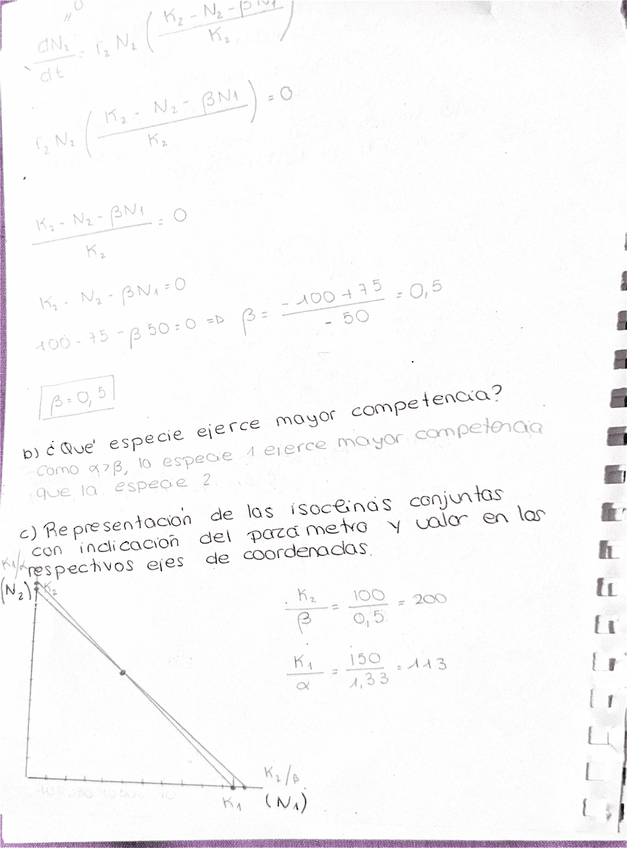 "0
dN₂/dt = r₂ N₂ ( (K₂ - N₂ - βN1)/K₂ )
r₂ N₂ ( (K₂ - N₂ - βN1)/K₂ ) = 0
(K₂ - N₂ - βN1)/K₂ = 0
K₂ - N₂ - βN1 = 0
100 - 75 - β 50 = 0 => β = (-100 + 75)/(-50) = 0,5
β = 0,5
b) ¿Qué especie ejerce mayor competencia?
como α>β, la especie 1 ejerce mayor competencia
que la especie 2.
c) Representación de las isoclinas conjuntas
con indicación del parámetro y valor en los
respectivos ejes de coordenadas.
K1/α
(N₂) K₂
K₂/β = 100/0,5 = 200
K1/α = 150/1,33 = 113
K₂/β
K1 (N1)